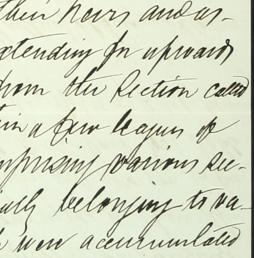 their heirs and as-
xtending for upwards
from the Section called
in a few leagues of
mprising various sec-
ally belonging to va-
h were accumulated